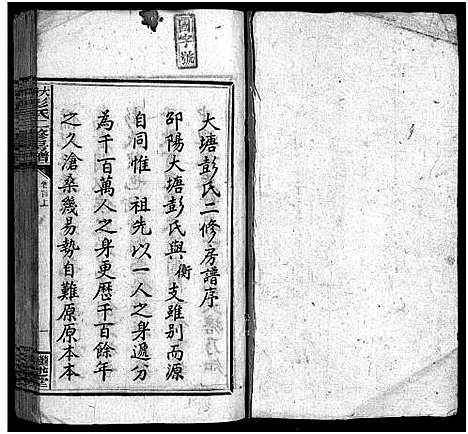 國字號
大塘彭氏二修房譜序
邵陽大塘彭氏與衡支雖別而源
自同惟 祖先以一人之身遞分
為千百萬人之身更歷千百餘年
之久滄桑幾易勢自難原原本本
大彭氏二修房譜
卷首上
一